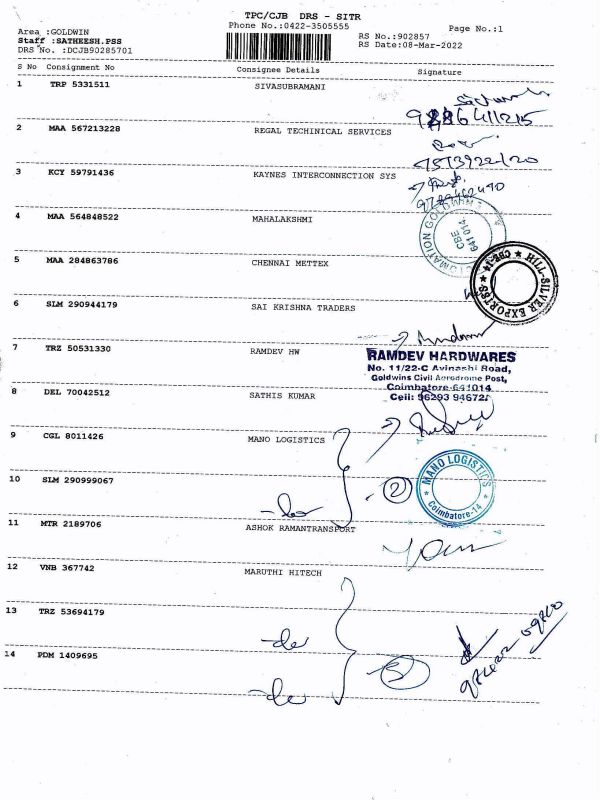 TPC/CJB DRS - SITR
Phone No.:0422-3505555
Page No.:1
Area :GOLDWIN
Staff :SATHEESH.PSS
DRS No. :DCJB90285701
RS No.:902857
RS Date:08-Mar-2022
S No Consignment No Consignee Details Signature
1 TRP 5331511 SIVASUBRAMANI
2 MAA 567213228 REGAL TECHINICAL SERVICES
3 KCY 59791436 KAYNES INTERCONNECTION SYS
4 MAA 564848522 MAHALAKSHMI
CBE
641 014
5 MAA 284863786 CHENNAI METTEX
HILL-SILVER EXPORTSS ★ CBE-14 ★
6 SLM 290944179 SAI KRISHNA TRADERS
7 TRZ 50531330 RAMDEV HW
RAMDEV HARDWARES
No. 11/22-C Avinashi Road,
Goldwins Civil Aerodrome Post,
Coimbatore-641014
Cell: 96293 94672
8 DEL 70042512 SATHIS KUMAR
9 CGL 8011426 MANO LOGISTICS
MANO LOGISTICS
★ Coimbatore-14 ★
10 SLM 290999067
-do-
2
11 MTR 2189706 ASHOK RAMANTRANSPORT
12 VNB 367742 MARUTHI HITECH
13 TRZ 53694179
-do-
14 PDM 1409695
-do-